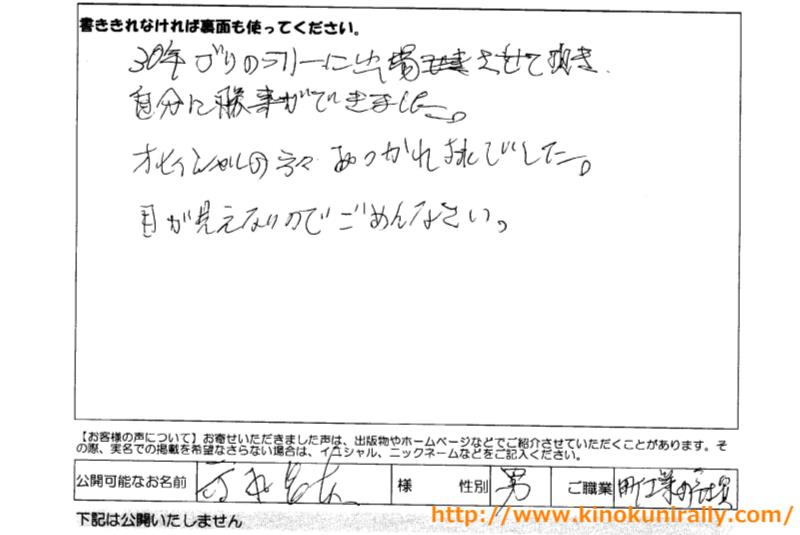 書ききれなければ裏面も使ってください。
30年ぶりのラリーに出場させて頂き
自分に勝事ができました。
オヒィシャルの方々 おつかれさまでした。
目が見えないのでごめんなさい。
【お客様の声について】お寄せいただきました声は、出版物やホームページなどでご紹介させていただくことがあります。そ
の際、実名での掲載を希望なさらない場合は、イニシャル、ニックネームなどをご記入ください。
公開可能なお名前 様 性別 男 ご職業
下記は公開いたしません
http://www.kinokunirally.com/